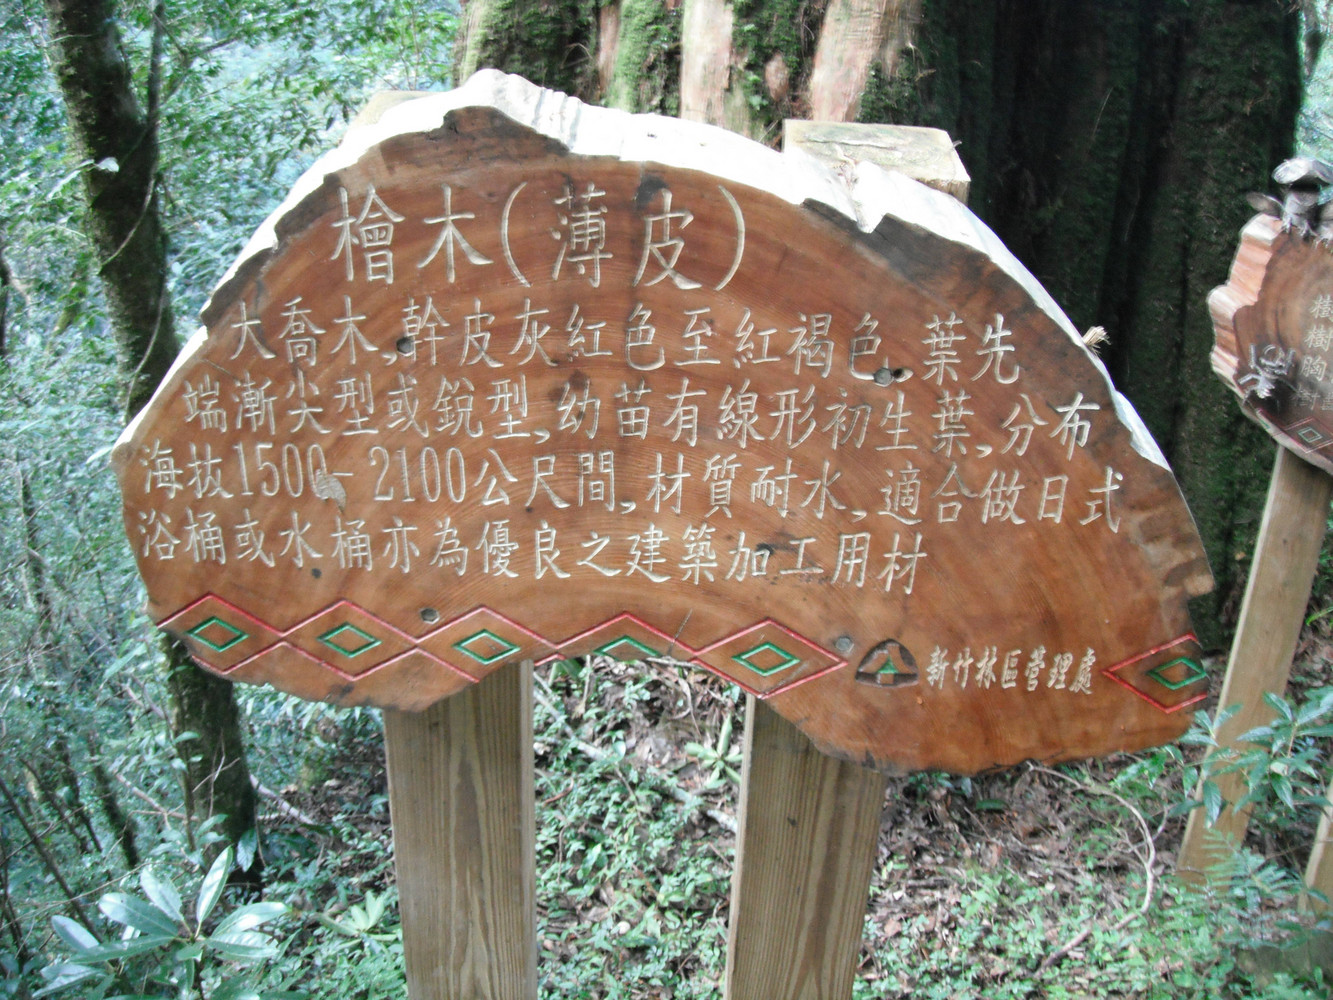 檜木(薄皮)
大喬木,幹皮灰紅色至紅褐色,葉先
端漸尖型或銳型,幼苗有線形初生葉,分布
海拔1500-2100公尺間,材質耐水,適合做日式
浴桶或水桶亦為優良之建築加工用材
新竹林區營理處